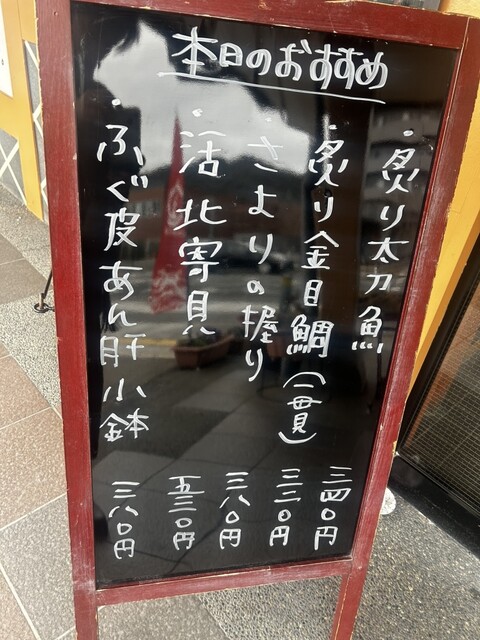 本日のおすすめ
・炙り太刀魚 三四〇円
・炙り金目鯛(一貫) 三二〇円
・さよりの握り 三八〇円
・活北寄貝 五三〇円
・ふぐ皮あん肝小鉢 三八〇円